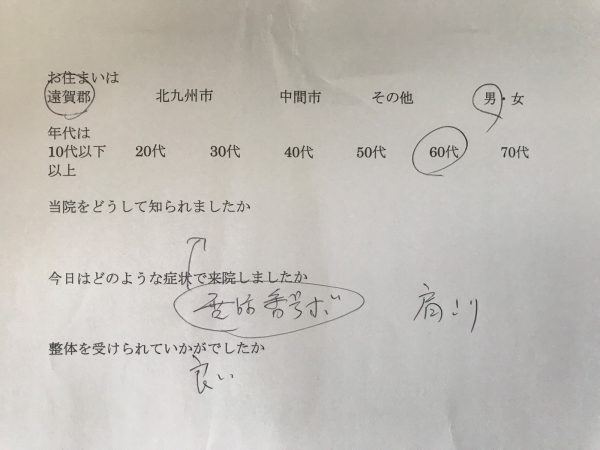 お住まいは
遠賀郡 北九州市 中間市 その他 男・女
年代は
10代以下 20代 30代 40代 50代 60代 70代
以上
当院をどうして知られましたか
今日はどのような症状で来院しましたか
電話番号ボ 肩こり
整体を受けられていかがでしたか
良い